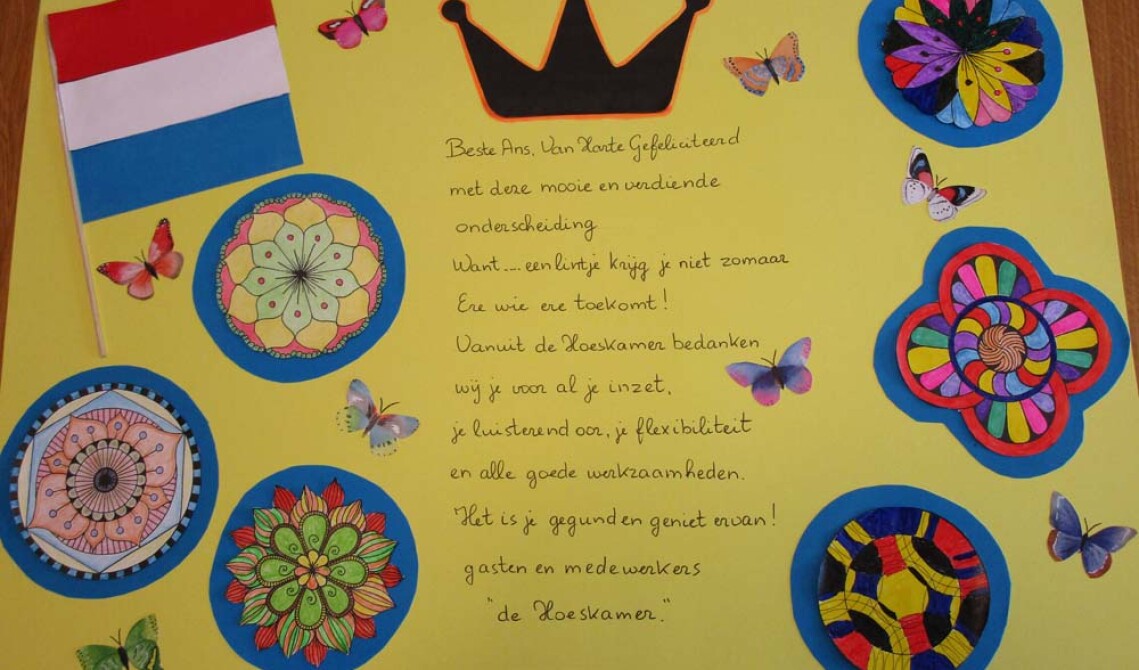 Beste Ans, Van Harte Gefeliciteerd
met deze mooie en verdiende
onderscheiding
Want.... een lintje krijg je niet zomaar
Ere wie ere toekomt!
Vanuit de Hoeskamer bedanken
wij je voor al je inzet,
je luisterend oor, je flexibiliteit
en alle goede werkzaamheden.
Het is je gegund en geniet ervan!
gasten en medewerkers
"de Hoeskamer."